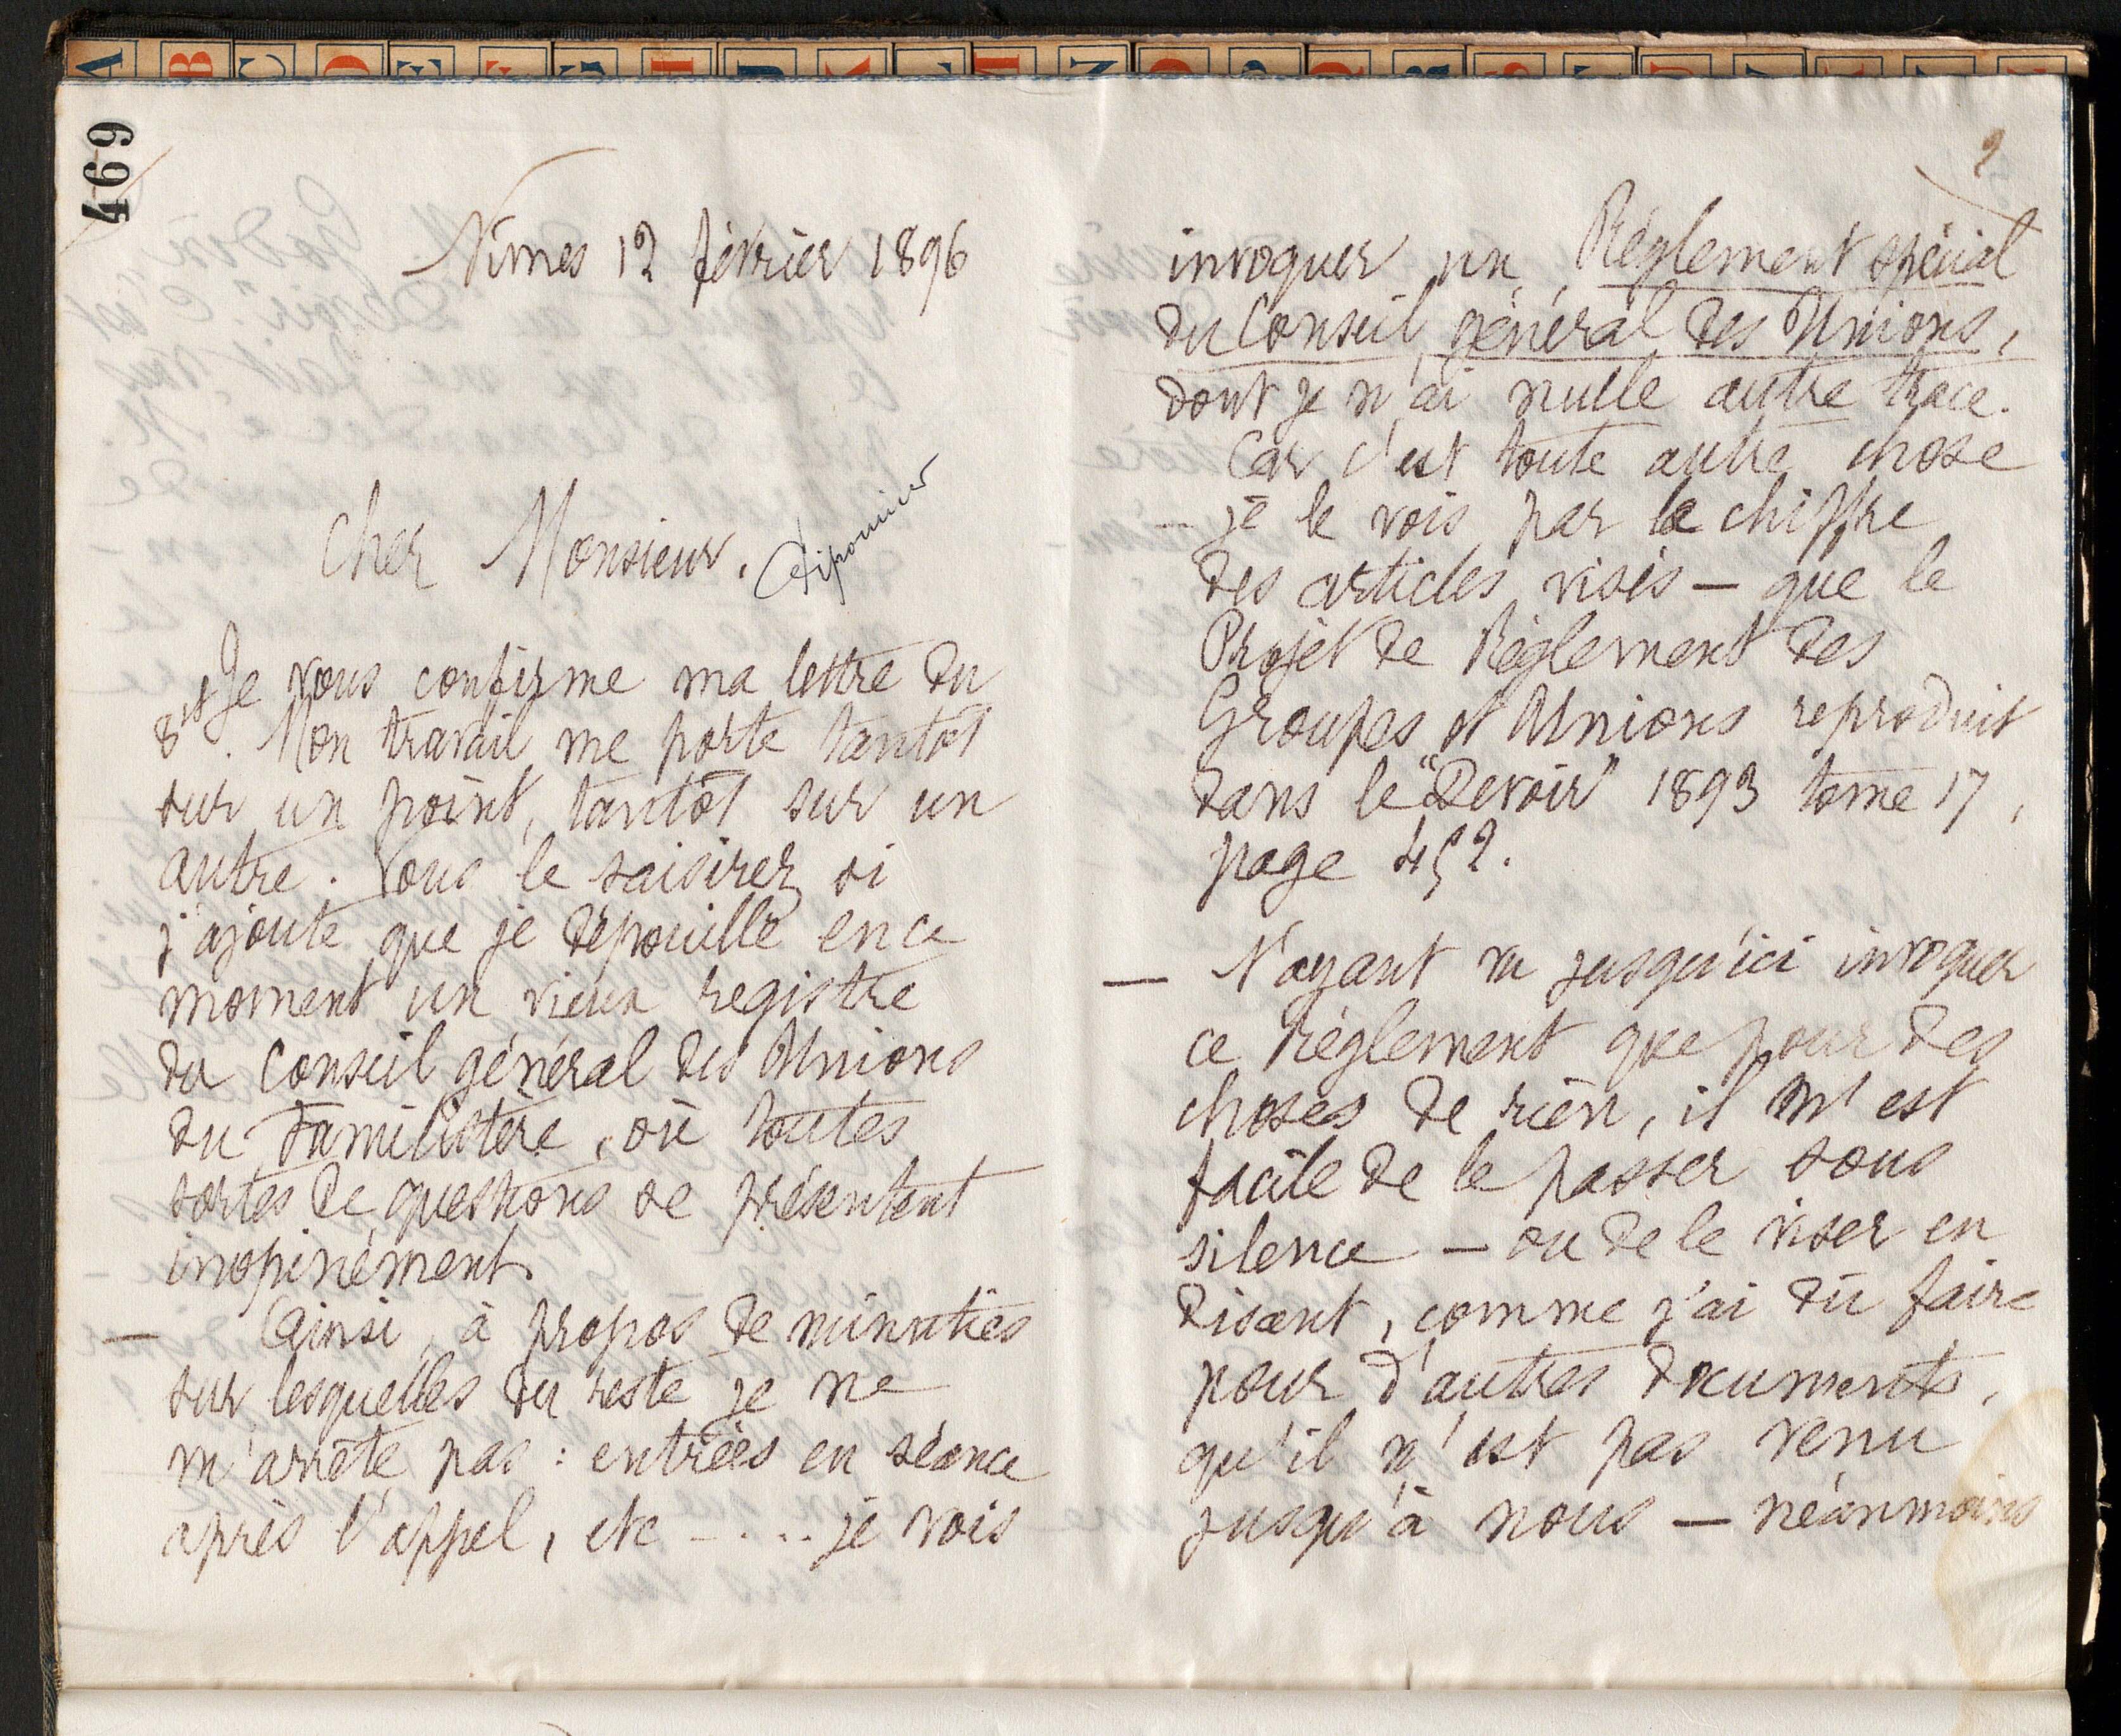 A B C D E F G H I J K L M N O P Q R S T U V
469
Nimes 12 février 1896
Cher Monsieur. Sipounier
Je vous confirme ma lettre du
8 ct. Mon travail me porte tantôt
sur un point, tantôt sur un
autre. Vous le saisirez si
j'ajoute que je dépouille en ce
moment un vieux registre
du Conseil général des Unions
du Familistère, où toutes
sortes de questions se présentent
inopinément.
— Ainsi, à propos de minuties
sur lesquelles du reste je ne
m'arrête pas : entrées en séance
après l'appel, etc - . . . je vois
2
invoquer un Règlement spécial
du Conseil général des Unions,
dont je n'ai nulle autre trace.
Car c'est toute autre chose
— je le vois par le chiffre
des articles visés — que le
Projet de Règlement des
Groupes et Unions reproduit
dans le "Devoir" 1893 tome 17,
page 452.
— N'ayant vu jusqu'ici invoquer
ce Règlement que pour des
choses de rien, il m'est
facile de le passer sous
silence — ou de le viser en
disant, comme j'ai dû faire
pour d'autres documents,
qu'il n'est pas venu
jusqu'à nous — néanmoins